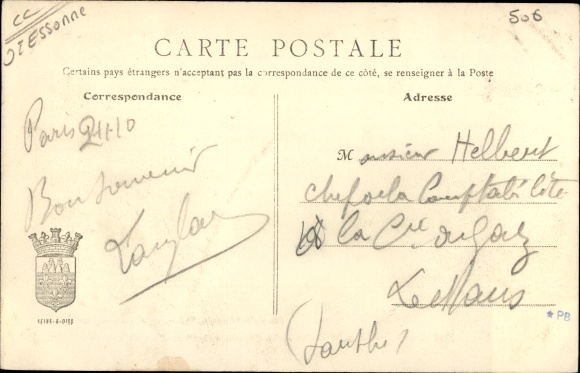 CC
OT ESSONNE
506
CARTE POSTALE
Certains pays étrangers n'acceptant pas la correspondance de ce côté, se renseigner à la Poste
Correspondance
Paris 24-10
Bon souvenir
Adresse
Monsieur Helbert
Chef de la Comptabilité
de la Cie du Gaz
Le Mans
(Sarthe)
★ PB